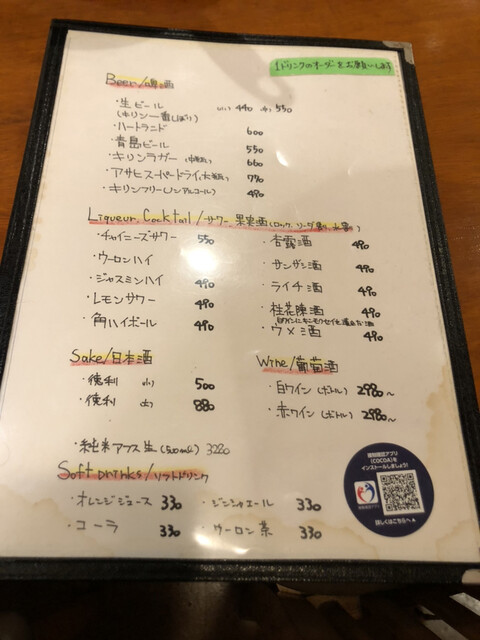 1ドリンクのオーダーをお願いします
Beer/啤酒
・生ビール (小) 490 (中) 550
(キリン一番しぼり)
・ハートランド 600
・青島ビール 550
・キリンラガー(中瓶) 660
・アサヒスーパードライ(大瓶) 770
・キリンフリー(ノンアルコール) 490
Liqueur Cocktail/サワー 果実酒(ロック、ソーダ割り、水割)
・チャイニーズサワー 550
・ウーロンハイ
・ジャスミンハイ 490
・レモンサワー 490
・角ハイボール 490
・杏露酒 490
・サンザシ酒 490
・ライチ酒 490
・桂花陳酒 490
白ワインにキンモクセイを漬込だ酒
・ウメ酒 490
Sake/日本酒
・徳利 (小) 500
・徳利 (大) 880
・純米 生(500ml) 3280
Wine/葡萄酒
・白ワイン(ボトル) 2980~
・赤ワイン(ボトル) 2980~
Soft drinks/ソフトドリンク
・オレンジジュース 330
・コーラ 330
・ジンジャエール 330
・ウーロン茶 330
接触確認アプリ
(COCOA)を
インストールしましょう!
詳しくはこちらへ